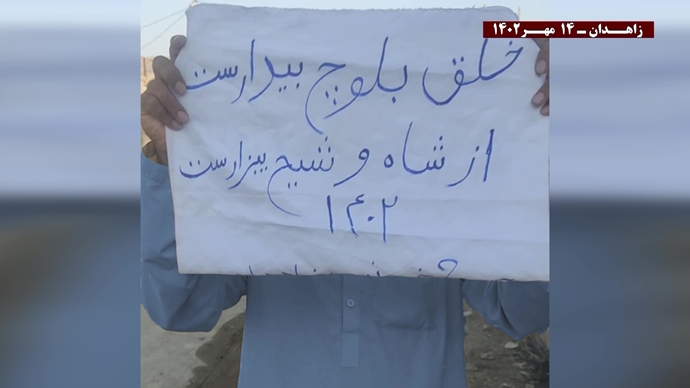 زاهـدان ـ ۱۴ مهـر۱۴۰۲
خلق بلوچ بیدارست
از شاه و شیخ بیزارست
۱۴۰۲